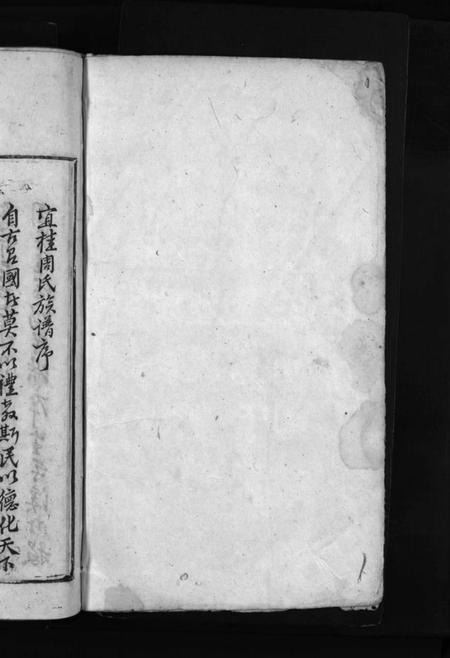 宜桂周氏族譜序
自古百國者莫不以禮教斯民以德化天下